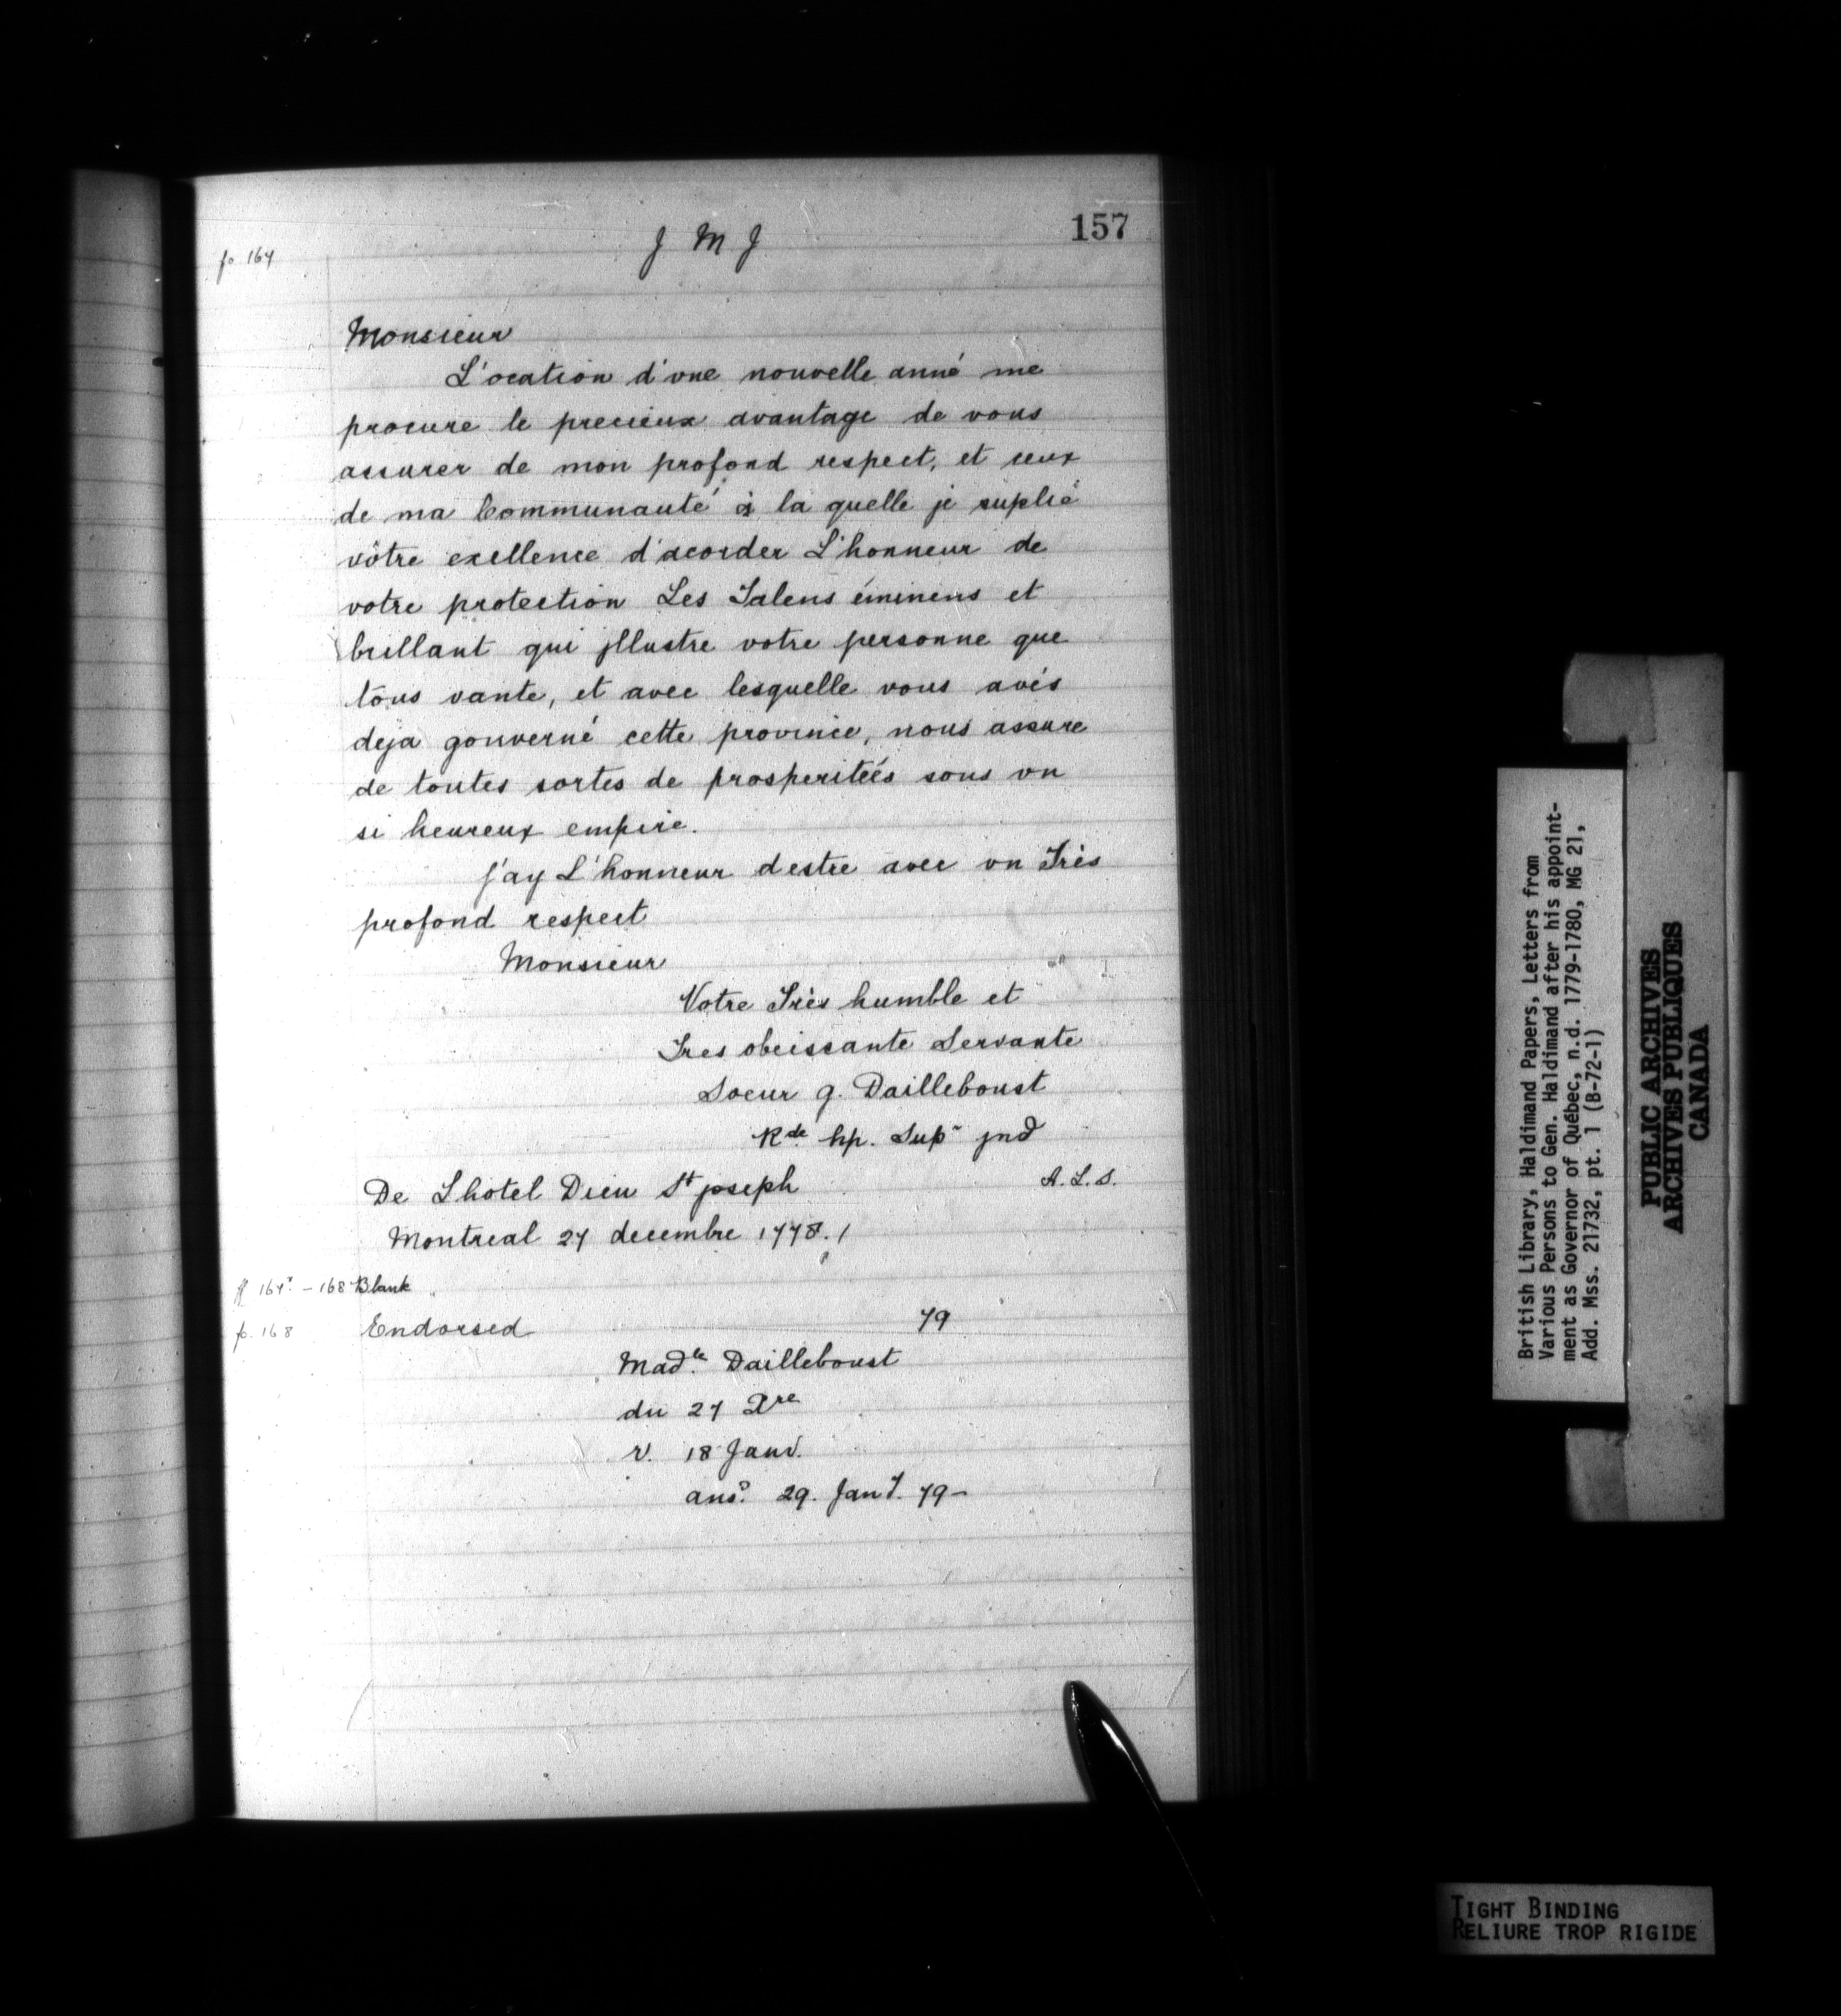 157
J M J
fo 167
Monsieur
L'ocation d'vne nouvelle anné me
procure le precieux avantage de vous
assurer de mon profond respect, et ceux
de ma Communauté à la quelle je suplie
vôtre exellence d'acorder L'honneur de
votre protection Les Talens éminens et
brillant qui jllustre votre personne que
tous vante, et avec lesquelle vous avés
deja gouverné cette province, nous assure
de toutes sortes de prosperiteés sous vn
si heureux empire.
j'ay L'honneur destre avec vn Très
profond respect
Monsieur
Votre Très humble et
Tres obeissante Servante
Soeur g. Dailleboust
Rde hp. Supr jnd
De Lhotel Dieu St joseph
A.L.S.
Montreal 27 decembre 1778./
ff 167v - 168 Blank
fo. 168 Endorsed 79
Madle Dailleboust
du 27 Xre
r. 18 Janv.
ansd. 29. Jany. 79-
British Library, Haldimand Papers, Letters from
Various Persons to Gen. Haldimand after his appoint-
ment as Governor of Québec, n.d. 1779-1780, MG 21,
Add. Mss. 21732, pt. 1 (B-72-1)
PUBLIC ARCHIVES
ARCHIVES PUBLIQUES
CANADA
TIGHT BINDING
RELIURE TROP RIGIDE